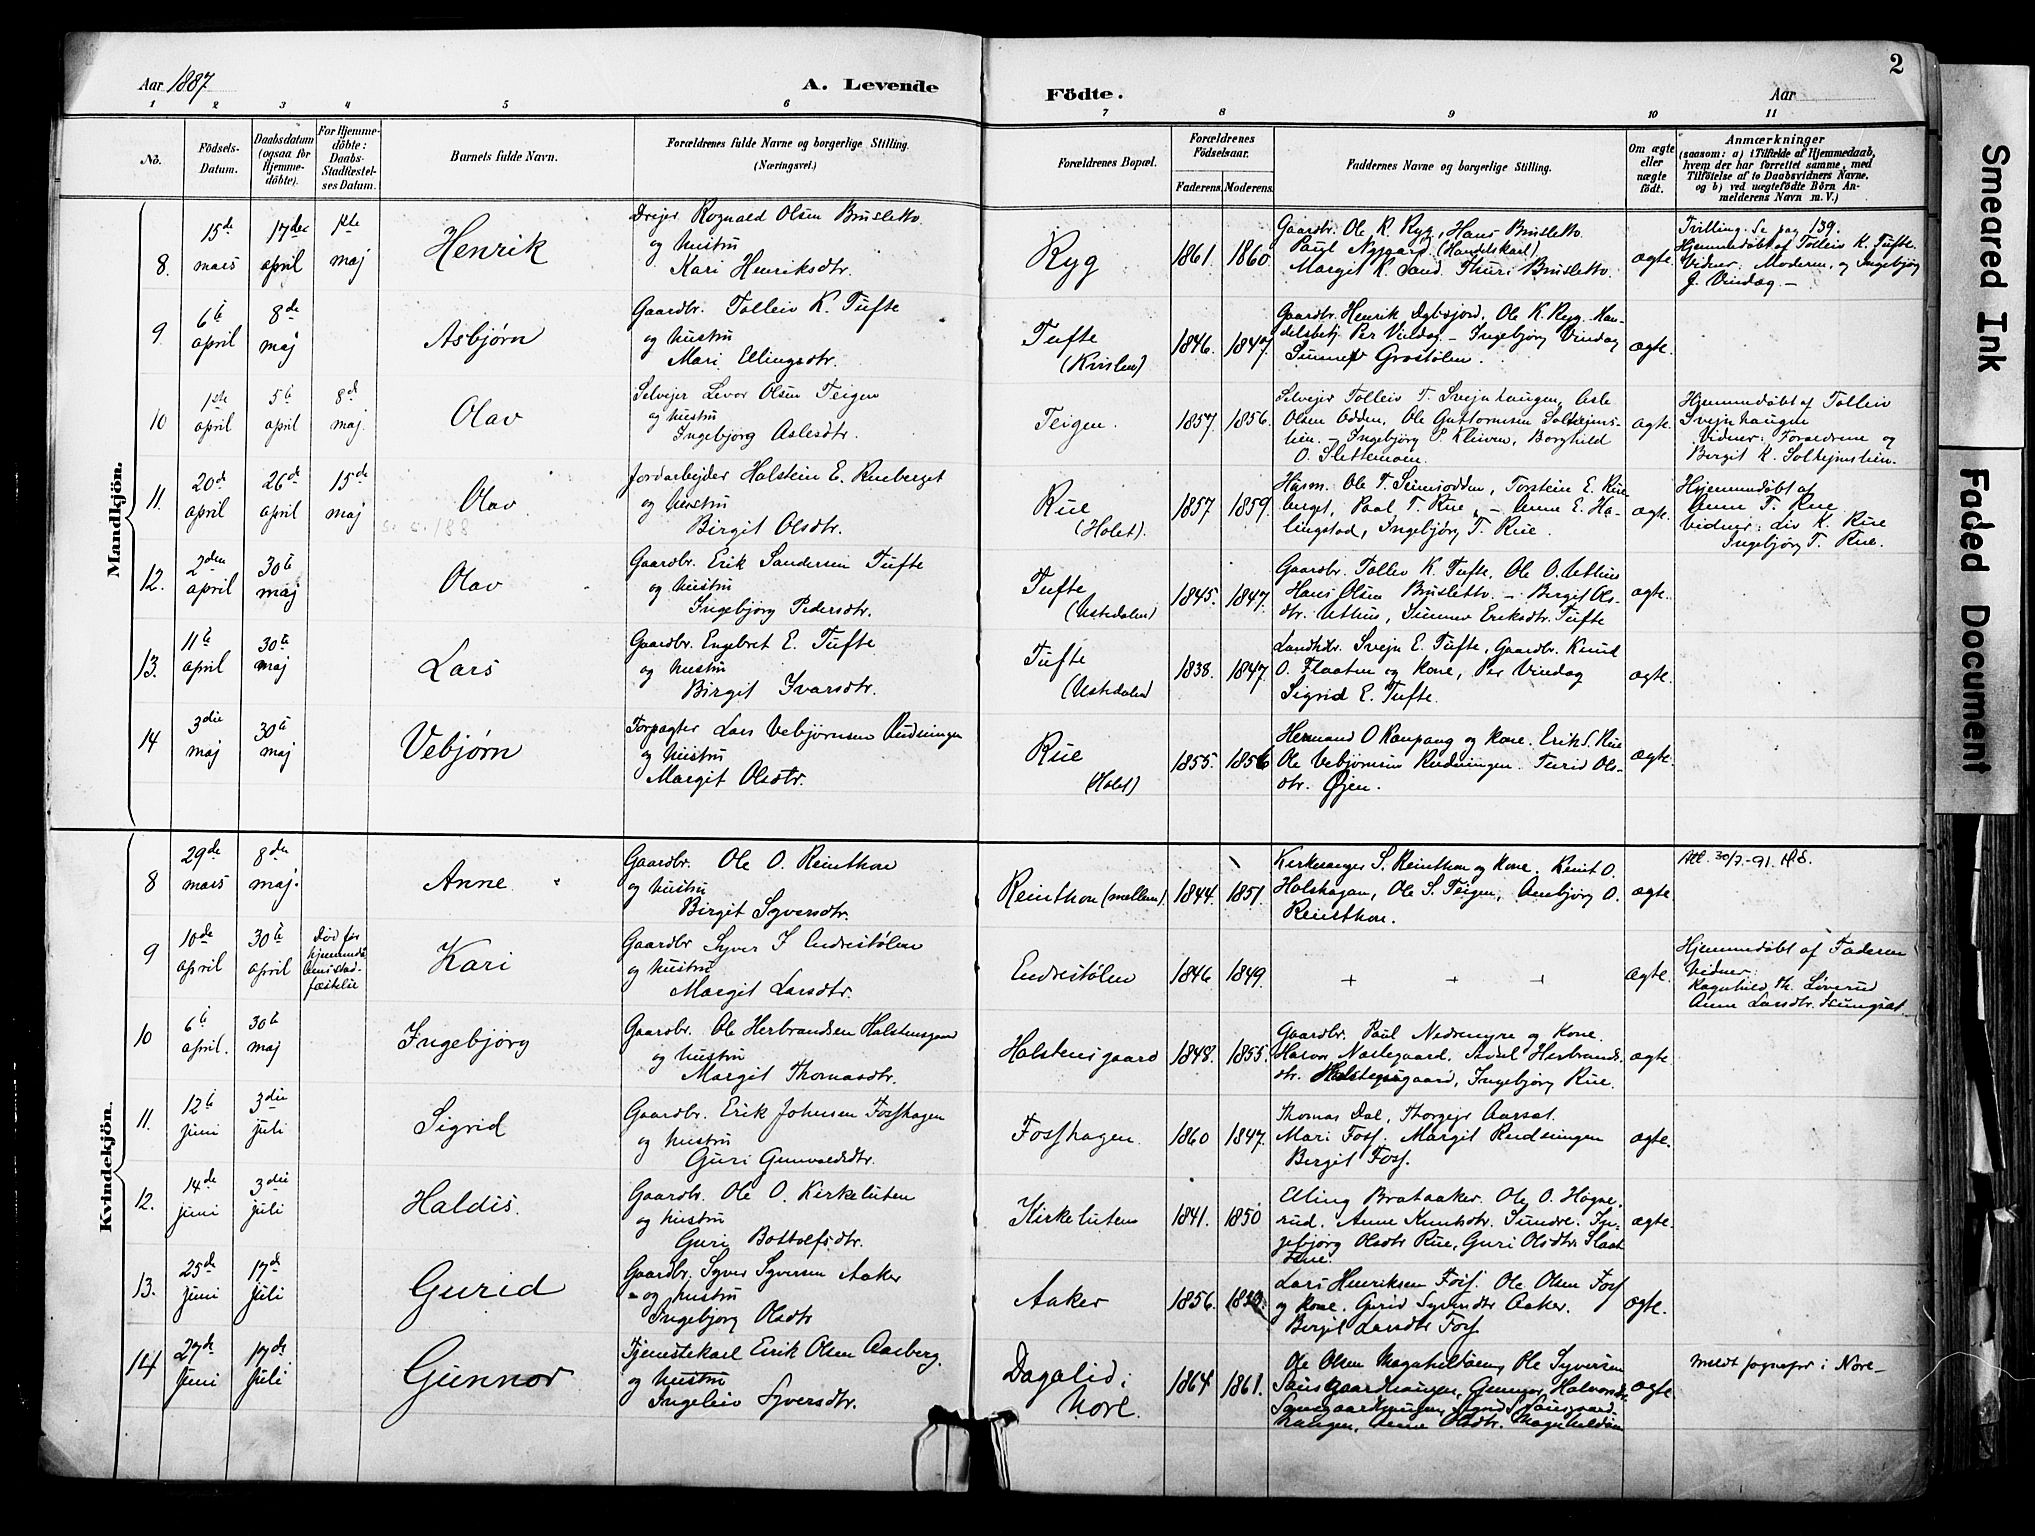 Aar 1887
A. Levende
Födte.
Aar
2
1 2 3 4 5 6 7 8 9 10 11
No.
Födsels-
Datum.
Daabsdatum
(ogsaa för
Hjemme-
döbte).
For Hjemme-
döbte:
Daabs-
Stadfæstel-
ses Datum.
Barnets fulde Navn.
Forældrenes fulde Navne og borgerlige Stilling.
(Næringsvei.)
Forældrenes Bopæl.
Forældrenes
Födselsaar.
Faderens. Moderens.
Faddernes Navne og borgerlige Stilling.
Om ægte
eller
uægte
födt.
Anmærkninger
(saasom: a) i Tilfælde af Hjemmedaab,
hvem der har forrettet samme, med
Tilföielse af to Daabsvidners Navne.
og b) ved uægtefödte Börn An-
melderens Navn m.V.)
Mandkjön.
8. 15de mars 17de april 1ste maj Henrik
Drejer Rognald Olsen Brusletto
og hustru
Kari Henriksdtr.
Ryg 1861. 1860.
Gaardbr. Ole K. Ryg, Hans Brusletto
Paul Nygaard (Handelskarl)
Margit K. Sand. Thuri Brusletto.
ægte.
Tvilling. Se pag 139.
Hjemmedøbt af Tolleiv K. Tufte.
Vidner: Moderen, og Ingebjørg
J. Vindag.—
9 6te april 8de maj Asbjørn
Gaardbr. Tolleiv K. Tufte
og hustru
Mari Ellingsdtr.
Tufte 1846. 1847.
Gaardbr. Henrik Ole K. Ryg. Han-
delsbetj. Per Vindag — Ingebjørg Vindag
Grostølen.
ægte.
10 1ste april 5te april 8de maj. Olav
Selvejer Levor Olsen Teigen
og hustru
Ingebjørg Aslesdtr.
Teigen. 1857. 1856.
Selvejer Tolleiv T. Svejnhaugen, Asle
Olsen Odden, Ole Guttormsen Solhejms-
lien. — Ingebjørg P. Kleiven, Borghild
O. Slettemoen.
ægte.
Hjemmedøbt af Tolleiv
Svejnhaugen
Vidner: Forældrene og
Birgit K. Solhejmslien.
11. 20de april 26de april 15de maj Olav
Jordarbejder Holstein E. Rueberget
og hustru
Birgit Olsdtr.
Rue
(Holet). 1857 1859.
Husm. Ole T. Torstein E. Rue-
berget, Paal T. Rue, — Anne E. Ha-
lingstad, Ingebjørg T. Rue.
ægte.
Hjemmedøbt af
Anne T. Rue.
Vidner: Liv K. Rue
Ingebjørg T. Rue.
12. 2den april 30te maj Olav
Gaardbr. Erik Sandersen Tufte
og hustru
Ingebjørg Pedersdtr.
Tufte
(Ustedalen) 1845. 1847.
Gaardbr. Tollev K. Tufte, Ole O. Uthus
Hans Olsen Brusletto. — Birgit Ols-
dtr. Uthus, Sunnev Eriksdtr. Tufte
ægte.
13. 11te april 30te maj Lars
Gaardbr. Engebret E. Tufte
og hustru
Birgit Ivarsdtr.
Tufte
(Ustedalen) 1838. 1847.
Landhdr. Svejn E. Tufte, Gaardbr. Knud
O. Flaaten og kone, Per Vindag
Sigrid E. Tufte.
ægte.
14 3die maj 30te maj Vebjørn
Forpagter Lars Vebjørnsen Rudningen
og hustru
Margit Olsdtr.
Rue
(Holet) 1855. 1856
Hermand O Kaupang og kone. Erik S. Rue
Ole Vebjørnsen Rudningen. Turid Ols-
dtr. Øjen.
ægte.
Kvindekjön.
8 29de mars 8de maj. Anne
Gaardbr. Ole O. Reinthon
og hustru
Birgit Syversdtr.
Reinthon (mellem). 1844. 1851.
Kirkesanger S. Reinthon og kone. Knut O.
Holshagen, Ole S. Teigen, Ambjørg O.
Reinthon.
ægte.
Att. 30/7.-91. HS.
9 10de april 30te april Død før
hjemmedå-
bens stad-
fæstelse Kari
Gaardbr Syver S Endrestølen
og hustru
Margit Larsdtr.
Endrestølen 1846 1849.
+ + +
ægte.
Hjemmedøbt af Faderen
Vidner:
Ragnhild Th. Løverud
Anne Larsdtr.
10 6te april. 30te maj Ingebjørg
Gaardbr. Ole Herbrandsen Holstensgaard
og hustru
Margit Thomasdtr.
Holstensgaard 1848. 1855.
Gaardbr. Paul Nedremyre og kone.
Halvor Næssegaard. Sidsel Herbrands-
dtr. Holstensgaard, Ingebjørg Rue.
ægte
11. 12te juni 3die juli Sigrid
Gaardbr. Erik Johnsen Fosshagen
og hustru
Guri Gunvaldsdtr.
Fosshagen. 1860 1847.
Thomas Dal, Thorgejr Aarset.
Mari Foss. Margit Rudningen
Birgit Foss.
ægte.
12. 14de juni 3die juli Haldis.
Gaardbr. Ole O. Kirkeluten
og hustru
Guri Bottolfsdtr.
Kirkeluten 1841. 1850
Elling Brataaker. Ole O. Hagne-
rud. Anne Knutsdtr. Sundre. In-
gebjørg Olsdtr Rue, Guri Olsdtr. Slaat-
ægte.
13. 25de juni 17de juli Gurid
Gaardbr. Syver Syversen Aaker
og hustru
Ingebjørg Olsdtr
Aaker 1856.
Lars Henriksen Foss. Ole Olsen Foss
og kone. Gurid Syversdtr Aaker.
Birgit Larsdtr Foss
ægte.
14 27de juni 17de juli Gunnor
Tjenestekarl Eirik Olsen Aasberg.
og hustru
Ingeleiv Syversdtr.
Dagalid i
Nore. 1864 1861.
Ole Olsen Magnhildøen, Ole Syversen
Sausgaardhaugen, Gunnor Halvorsdtr
Sausgaardhaugen, Sigrid S. Sausgaard-
haugen, Anne Olsdtr. Magnhildøen
ægte
meldt sognepr i Nore—
Smeared Ink
Faded Document